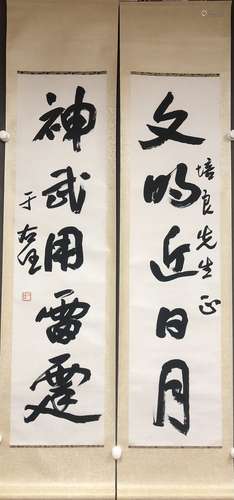 文明近日月
培良先生正
神武用雷霆
于右任